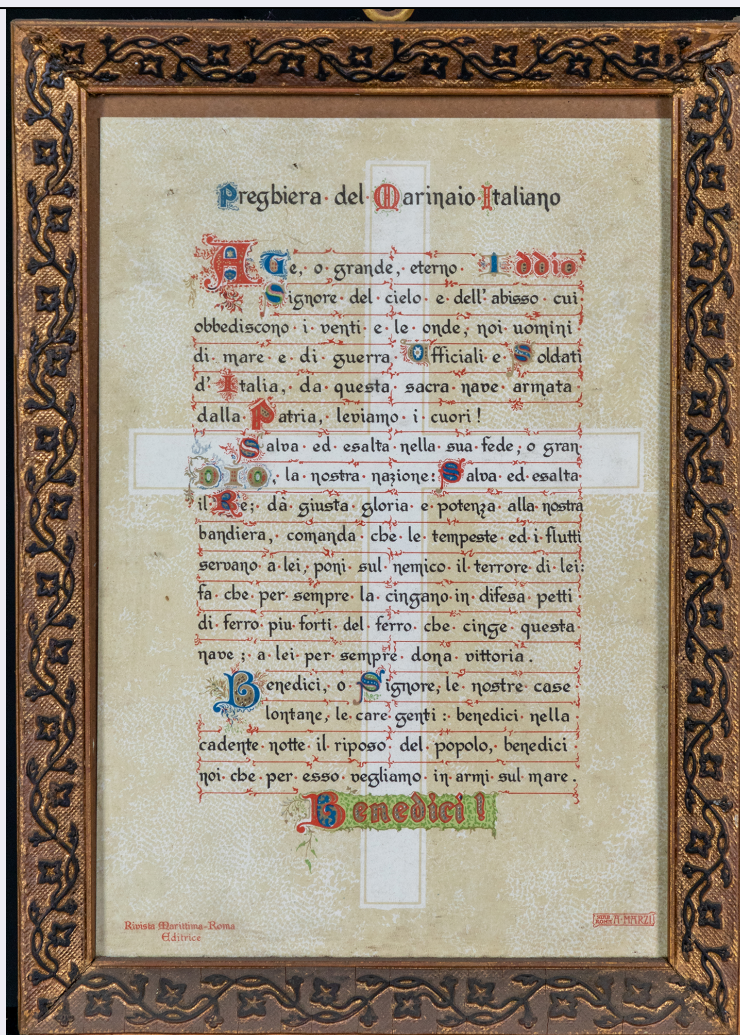 Preghiera del Marinaio Italiano
A Te, o grande, eterno Iddio
Signore del cielo e dell' abisso cui
obbediscono i venti e le onde, noi uomini
di mare e di guerra, Officiali e Soldati
d' Italia, da questa sacra nave armata
dalla Patria, leviamo i cuori!
Salva ed esalta nella sua fede, o gran
DIO, la nostra nazione: Salva ed esalta
il Re; dà giusta gloria e potenza alla nostra
bandiera, comanda che le tempeste ed i flutti
servano a lei; poni sul nemico il terrore di lei:
fa che per sempre la cingano in difesa petti
di ferro piu forti del ferro che cinge questa
nave; a lei per sempre dona vittoria.
Benedici, o Signore, le nostre case
lontane, le care genti: benedici nella
cadente notte il riposo del popolo, benedici
noi che per esso vegliamo in armi sul mare.
Benedici!
Rivista Marittima-Roma
Editrice
A. MARZI